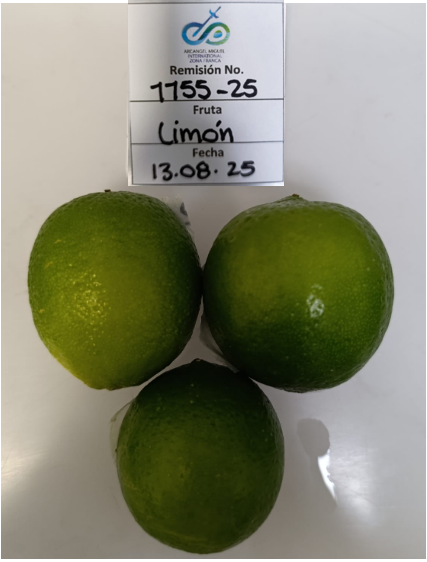 ARCANGEL MIGUEL
INTERNATIONAL
ZONA FRANCA
Remisión No.
1155-25
Fruta
Limón
Fecha
13.08.25